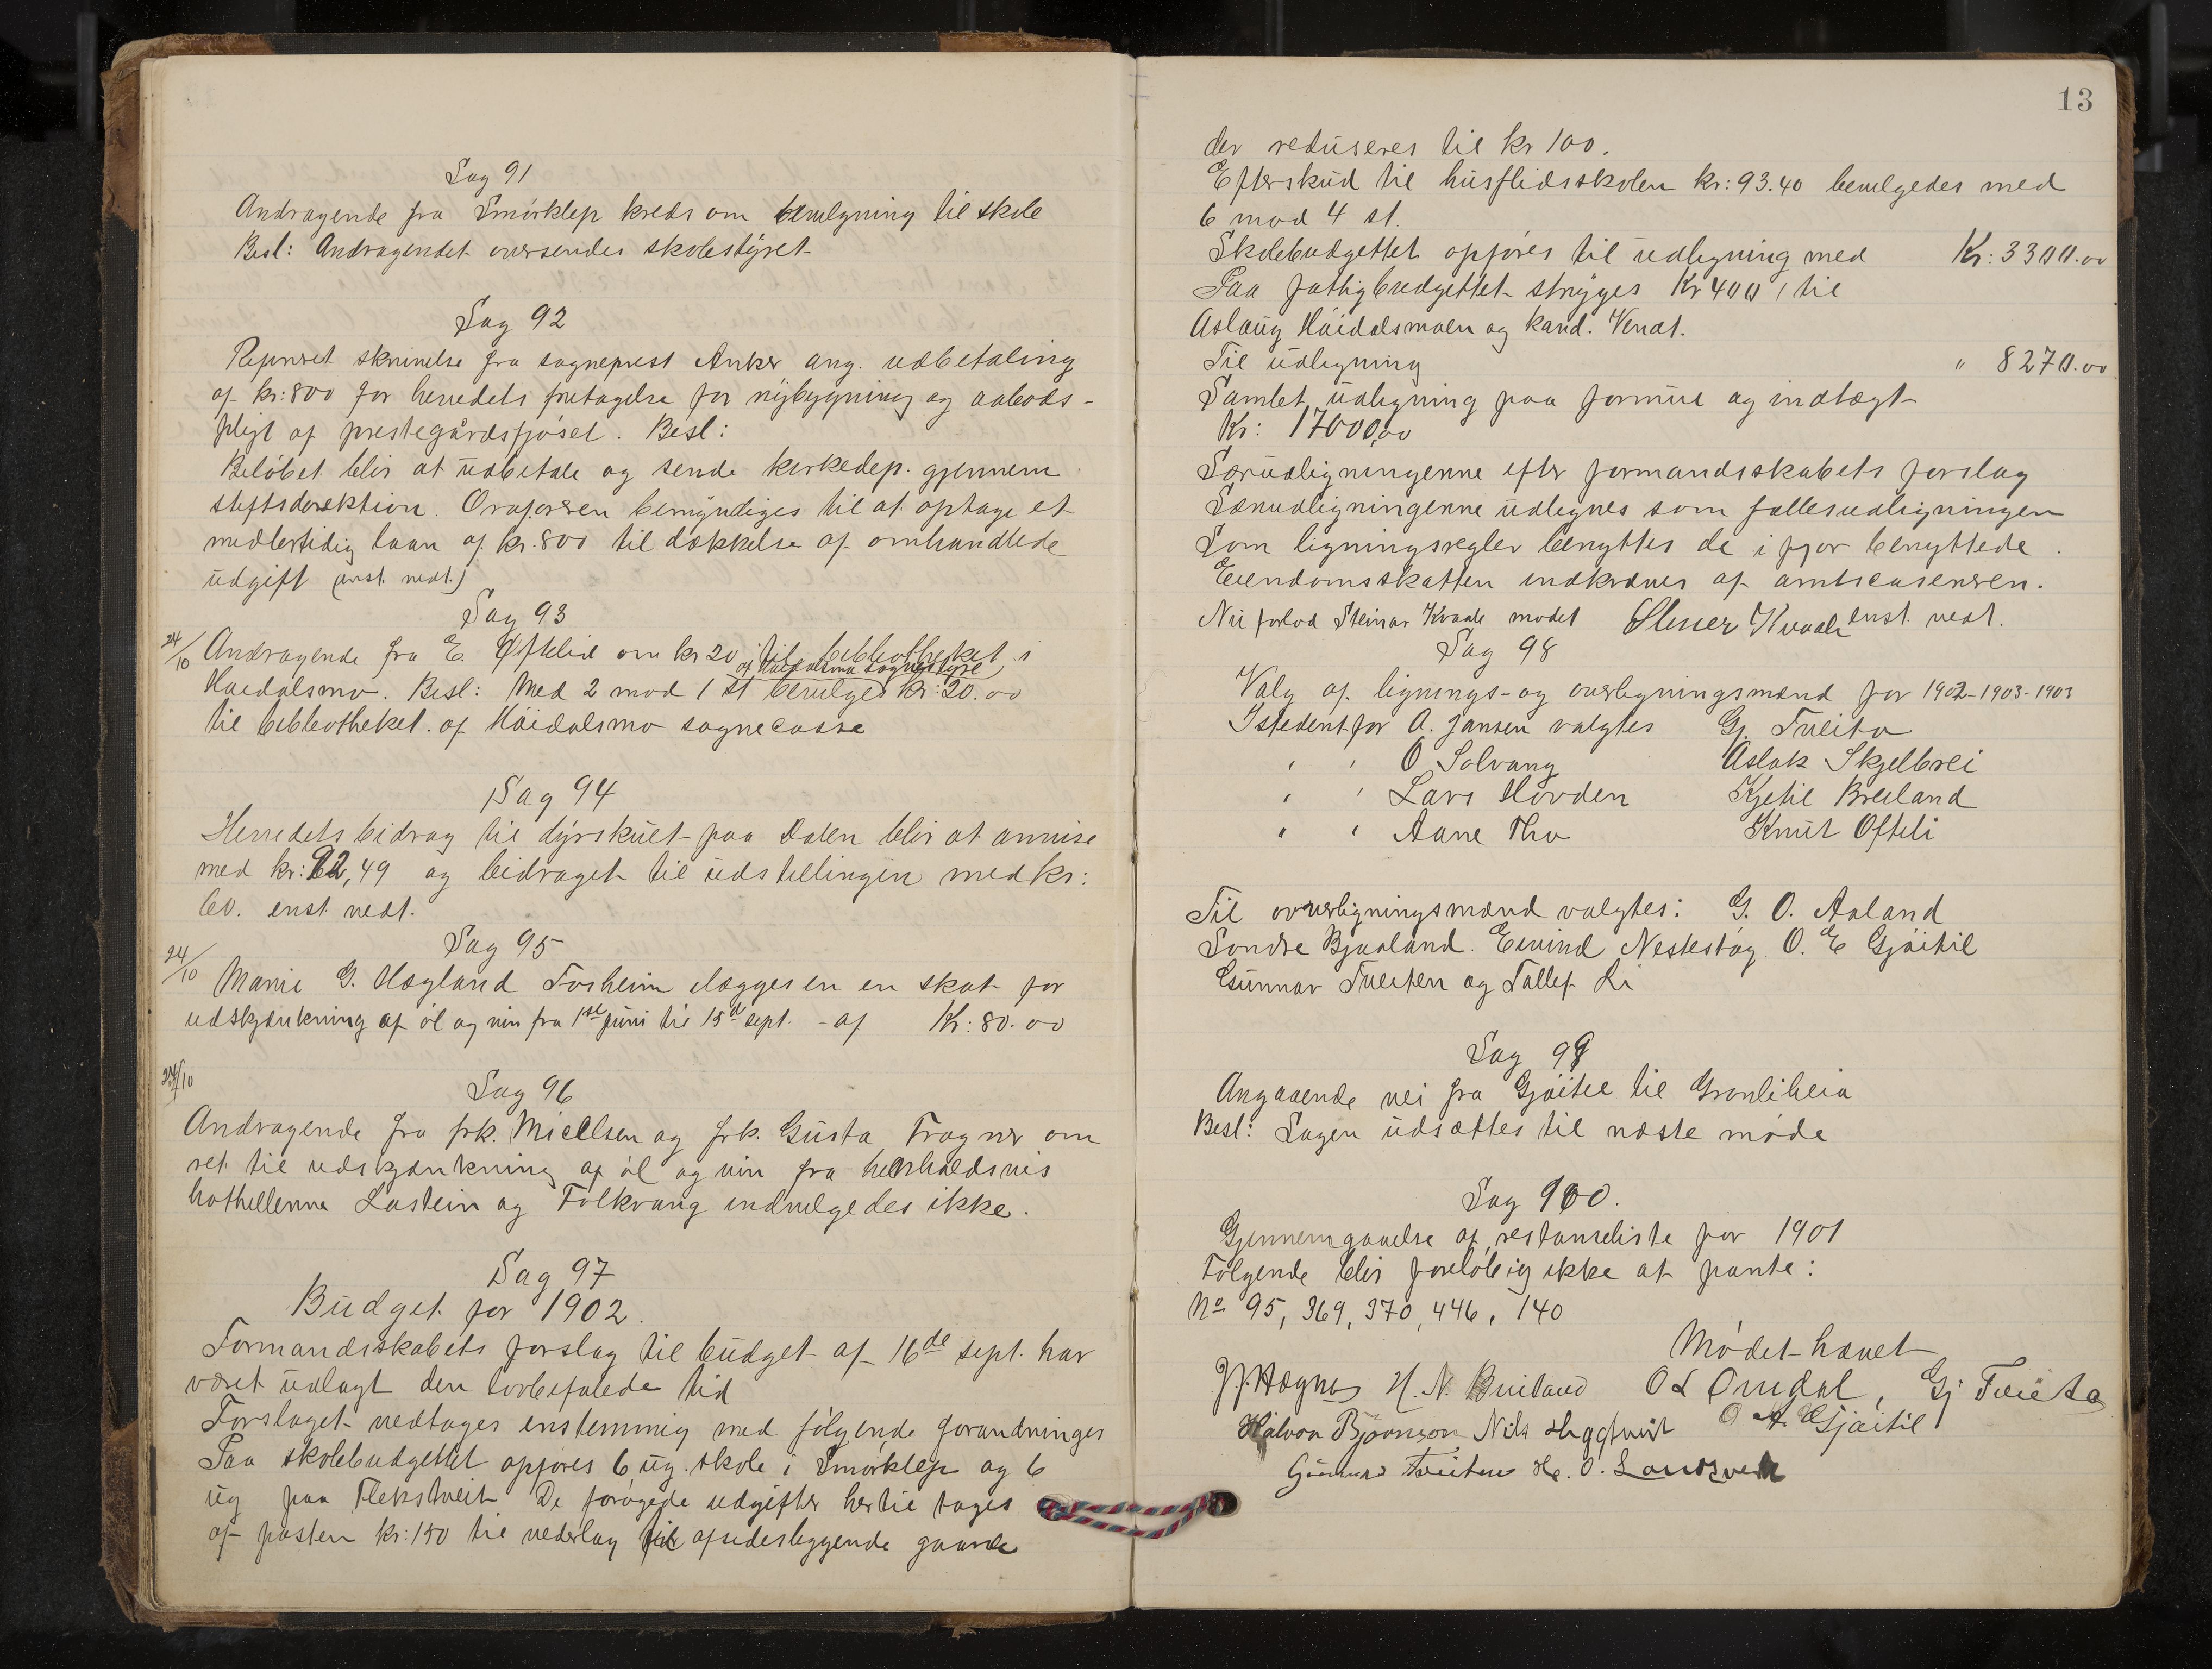 Sag 91
Andragende fra Smørklep kreds om bevilgning til skole
Besl: Andragendet oversendes skolestyret
Sag 92
skrivelse fra sogneprest Anker ang. udbetaling
af kr: 800 for herredets fritagelse for nybygning og aabods-
pligt af prestegårdsfjøset. Besl:
Beløbet blir at udbetale og sende kirkedep. gjennem
stiftsdirektion. Ordføreren bemyndiges til at optage et
midlertidig laan af kr. 800 til dækkelse af omhandlede
udgift (enst. vedt.)
Sag 93
24/10 Andragende fra E. Oftelid om kr 20 til bibliotheket i
af Høidalsmo sognestyre
Høidalsmo. Besl: Med 2 mod 1 st bevilges kr: 20.00
til bibliotheket af Høidalsmo sognecasse
Sag 94
Herredets bidrag til dyrskuet paa Dalen blir at anvise
med kr: 92,49 og bidraget til udstillingen med kr:
60. enst. vedt.
Sag 95
24/10 Marie G. Hægland Forsheim ilægges en en skat for
udskjænkning af øl og vin fra 1ste juni til 15de sept. - af Kr: 80.00
24/10
Sag 96
Andragende fra frk. Miellsen og frk. Gusta Fragner om
ret til udskjænkning af øl og vin fra henholdsvis
hothellerne Lastein og Folkvang indvilgedes ikke.
Sag 97
Budget for 1902.
Formandsskabets forslag til budget af 16de sept. har
været udlagt den lovbefalede tid
Forslaget vedtages enstemmig med følgende forandringer
Paa skolebudgettet opføres 6 ug. skole i Smørklep og 6
ug paa Flekstveit De forøgede udgifter hertil tages
af posten kr: 150 til vederlag til afsidesliggende gaarde
13
der reduseres til kr 100.
Efterskud til husflidsskolen kr: 93.40 bevilgedes med
6 mod 4 st.
Skolebudgettet opføres til udligning med Kr: 3300.00
Paa fattigbudgettet stryges Kr 400, til
Aslaug Høidalsmoen og kand. Vendt.
Til udligning " 8270.00
Samlet udligning paa formue og indtægt
Kr: 17000,00
Særudligningerne efter formandsskabets forslag
Særudligningerne udlignes som fællesudligningen
Som ligningsregler benyttes de i fjor benyttede.
Eiendomsskatten indkræves af amtscasereren.
Nu forlod Steinar Kvaale mødet Steiner Kvaale enst. vedt.
Sag 98
Valg af lignings- og overligningsmænd for 1902-1903-1903
Istedenfor A. Jansen valgtes Gj. Tveito
" " O Solvang Aslak Skjelbrei
" " Lars Hovden Kjetil Breiland
" " Aane Tho Knut Ofteli
Til overligningsmænd valgtes: G. O. Aaland
Sondre Bjaaland. Eivind Nestestøg O. E Gjøitil
Gunnar Tveiten og Tallef Li
Sag 99
Angaaende vei fra Gjøitil til Grønliheia
Besl: Sagen udsættes til næste møde
Sag 100.
Gjennemgaaelse af restanseliste for 1901
Følgende blir foreløbig ikke at pante:
No 95, 369, 370, 446, 140
Mødet hævet
H. N. Breiland O L Omdal, Gj Tveito
Halvor Bjørnson Nils Heggtveit O A. Gjøitil
Gunnar Tveiten H. O. Landsverk